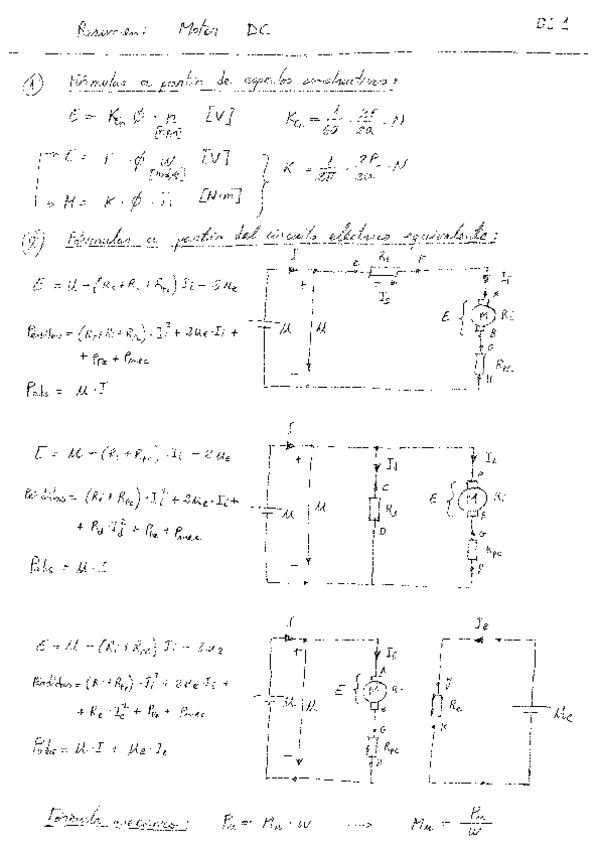 Resumen: Motor DC
① Fórmulas a partir de aspectos constructivos:
E = K_en · ϕ · n [V]
[rpm]
E = K · ϕ · ω [V]
[rad/s]
M = K · ϕ · Ii [N·m]
② Fórmulas a partir del circuito eléctrico equivalente:
E = U - (Rs + Ri + Rpc) Ii - 2Ue
Pérdidas = (Rs + Ri + Rpc) · Ii² + 2Ue · Ii +
+ PFe + Pmec
Pabs = U · I
I
E
Rs
F
Is
Ii
A
U
U
E
M
Ri
B
G
Rpc
H
E = U - (Ri + Rpc) · Ii - 2Ue
Pérdidas = (Ri + Rpc) · Ii² + 2Ue · Ii +
+ Rd · Id² + PFe + Pmec
Pabs = U · I
I
Id
Ii
C
A
U
U
Rd
E
M
Ri
D
B
G
Rpc
E = U - (Ri + Rpc) Ii - 2Ue
Pérdidas = (Ri + Rpc) · Ii² + 2Ue · Ii +
+ Re · Ie² + PFe + Pmec
Pabs = U · I + Ue · Ie
I
Ii
Ie
A
U
U
E
M
Ri
B
J
Re
K
Ue
G
Rpc
H
Fórmula mecánica: Pu = Mu · ω → Mu = Pu / ω